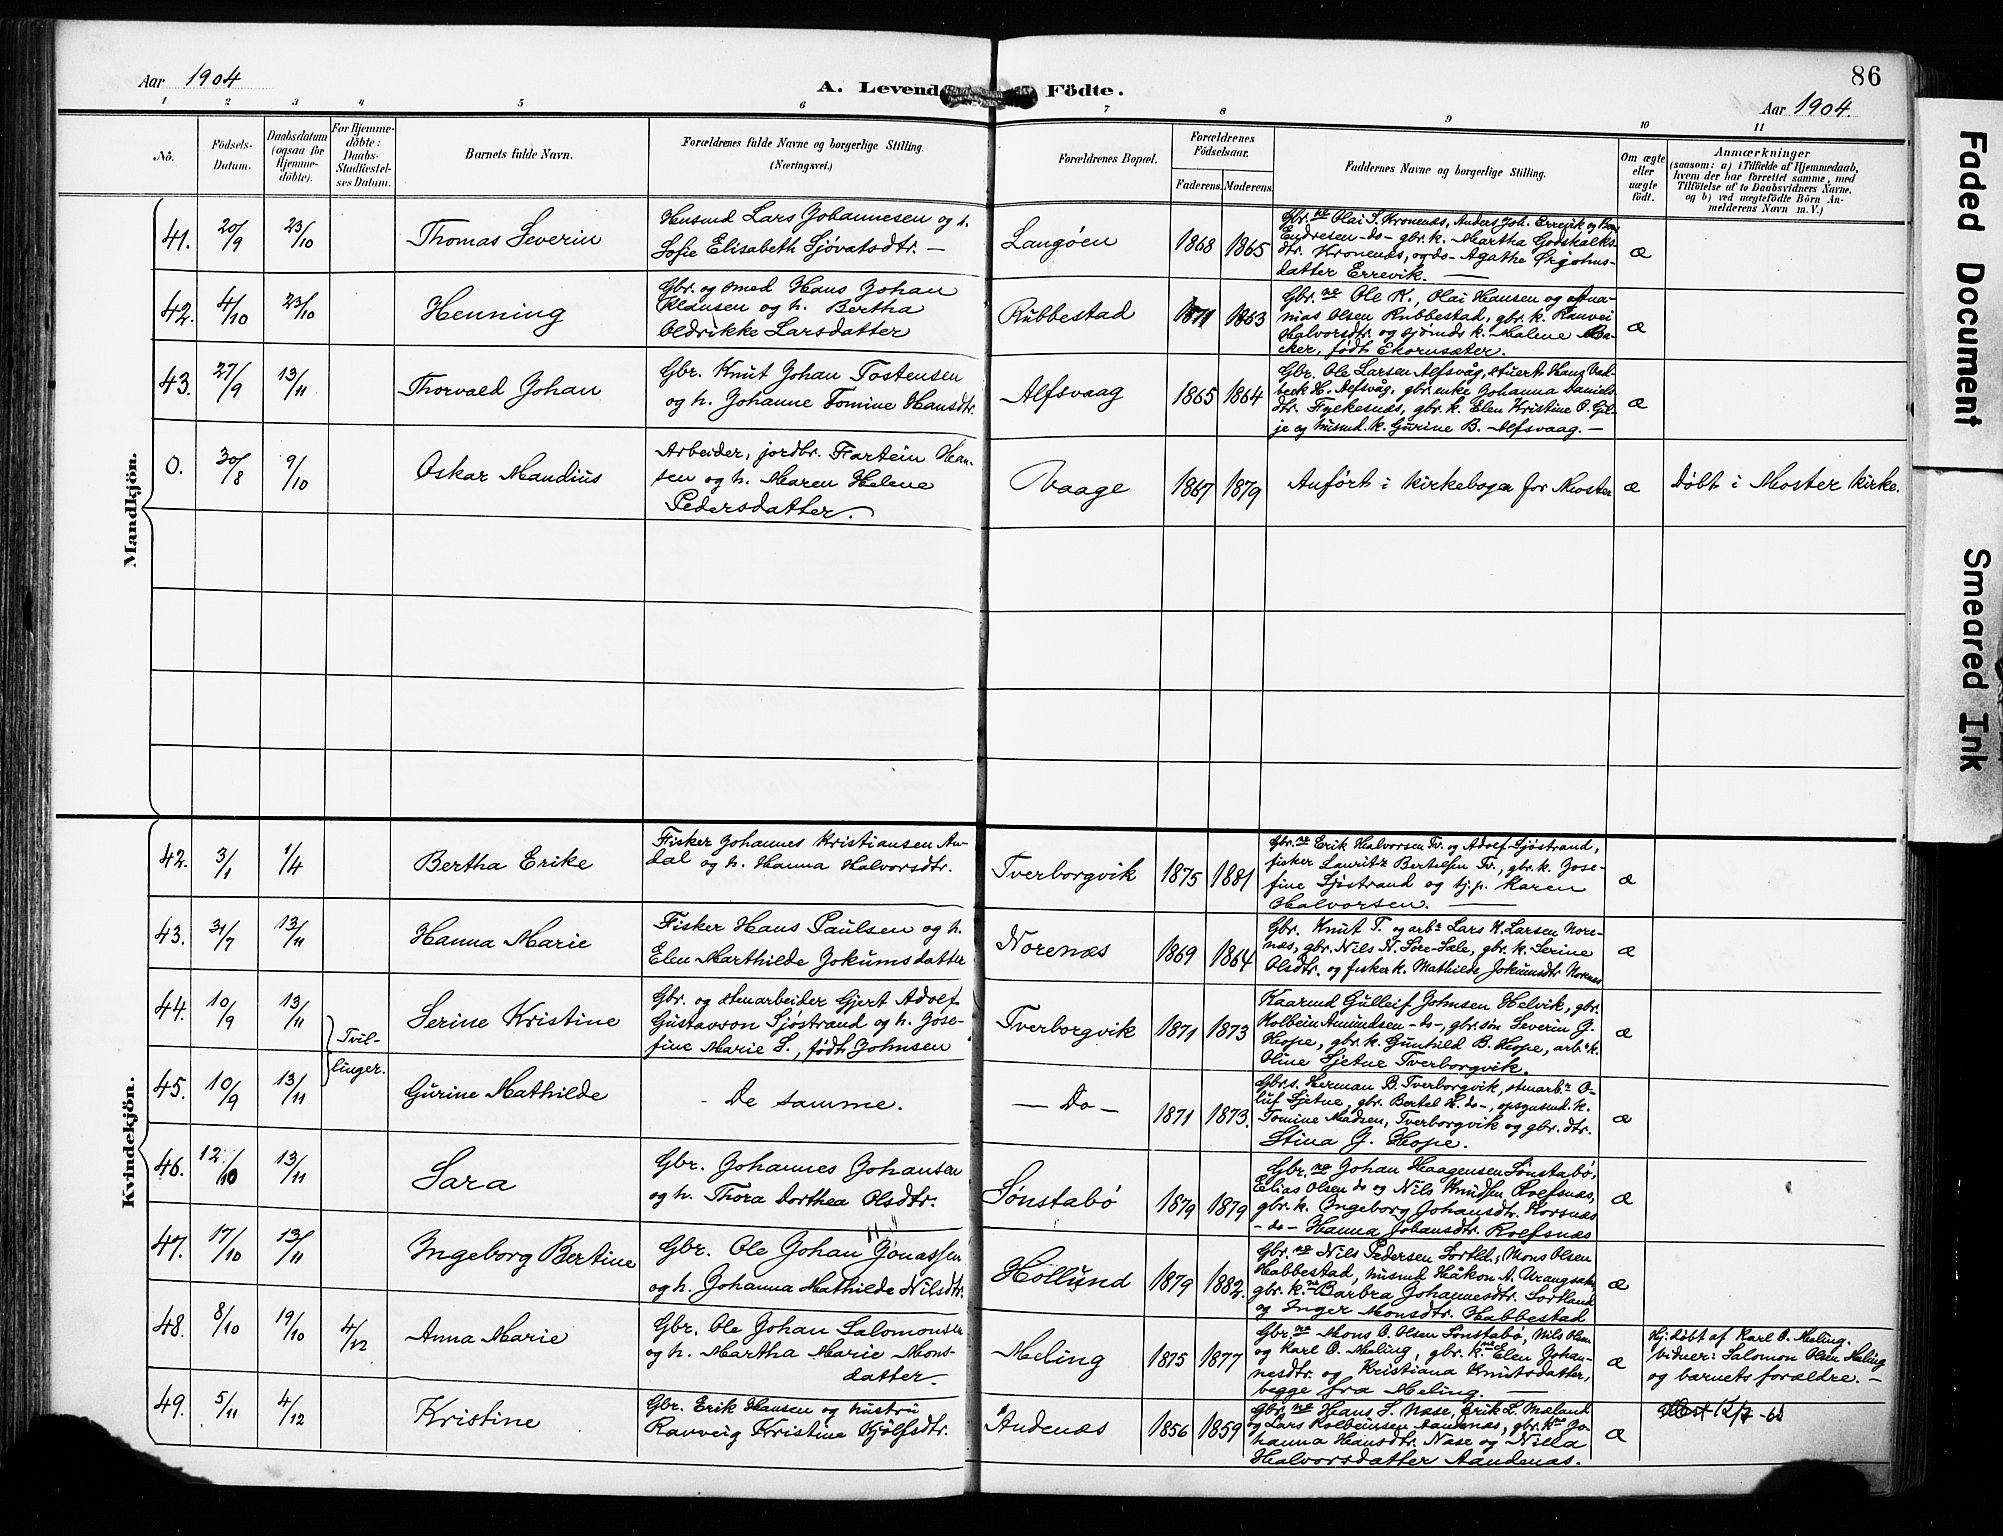 Aar 1904
A. Levende Födte.
86
Aar 1904.
1 2 3 4 5 6 7 8 9 10 11
No.
Födsels-
Datum.
Daabsdatum
(ogsaa för
Hjemme-
döbte).
For Hjemme-
döbte:
Daabs-
Stadfæstel-
ses Datum.
Barnets fulde Navn.
Forældrenes fulde Navne og borgerlige Stilling.
(Næringsvei.)
Forældrenes Bopæl.
Forældrenes
Födselsaar.
Faderens. Moderens.
Faddernes Navne og borgerlige Stilling.
Om ægte
eller
uægte
födt.
Anmærkninger
(saasom: a) i Tilfælde af Hjemmedaab,
hvem der har forrettet samme, med
Tilföielse af to Daabsvidners Navne,
og b) ved uægtefödte Börn An-
melderens Navn m. V.)
Mandkjön.
41. 20/9 23/10 Thomas Severin
Husmd Lars Johannesen og h.
Sofie Elisabeth Sjovatsdtr. —
Langøen 1868 1865
Gbr. ne Olai S. Kronenæs, Anders Joh. Errevik og
Endresen -do- gbr. k. Martha Godskalks-
dtr. Kronenæs, og do- Agathe Ørjohns-
datter Errevik. —
æ
42. 4/10 23/10 Henning
Gbr. og smed Hans Johan
Klausen og h. Bertha
Oldrikke Larsdatter
Rubbestad 1871 1863
Gbr. ne Ole K., Olai Hansen og Ana-
nias Olsen Rubbestad, gbr. k. Ranvei
Halvorsdtr. og sjømds k. Malene
cker, født Ekornsæter.
æ
43. 27/9 13/11 Thorvald Johan
Gbr. Knut Johan Tostensen
og h. Johanne Tomine Hansdtr.
Alfsvaag 1865 1864
Gbr. Ole Larsen Alfsvåg, stuert Hans
beck H. Alfsvåg, gbr. enke Johanna Daniels-
dtr. Fylkesnæs, gbr. k. Elen Kristine O. Gil-
je og husmd. k. Gurine B. Alfsvaag. —
æ
0. 30/8 9/10 Oskar Mandius
Arbeider, jordbr. Fartein Han-
sen og h. Maren Helene
Pedersdatter.
Vaage 1867 1879
Anført i kirkeboga for Moster
æ
Døbt i Moster kirke.
Kvindekjön.
42. 3/1 1/4 Bertha Erike
Fisker Johannes Kristiansen An-
dal og h. Hanna Halvorsdtr.
Tverborgvik 1875 1881
Gbr. ne Erik Halvorsen Tv. og Adolf Sjøstrand,
fisker Lauritz Bertelsen Tv., gbr. k. Jose-
fine Sjøstrand og tj.p. Karen
Halvorsen. —
æ
43. 31/7 13/11 Hanna Marie
Fisker Hans Paulsen og h.
Elen Marthilde Jokumsdatter
Norenæs 1869 1864
Gbr. Knut T. og arb. Lars K. Larsen Nore-
næs, gbr. Nils N. Søre-Sale, gbr. k. Serine
Olsdtr. og fisker k. Mathilde Jokumsdtr. Norenæs
æ
44. 10/9 13/11 Tvil-
linger.
Serine Kristine
Gbr. og stenarbeider Gjert Adolf
Gustavson Sjøstrand og h. Jose-
fine Marie S., født Johnsen
Tverborgvik 1871 1873
Kaarmd Gulleif Johnsen Helvik, gbr.
Kolbein Amundsen -do-, gbr. søn Severin G.
Hope, gbr. k. Gunhild B. Hope, arb. k.
Oline Sjetne Tverborgvik.
æ
45. 10/9 13/11 Gurine Mathilde
- De samme.
— Do — 1871 1873.
Gbr. s. Herman B. Tverborgvik, stenarb. O-
luf Sjetne, gbr. Bertel H. do-, opsynsmd. k.
Tomine Madsen, Tverborgvik og gbr. dtr.
Stina G. Hope.
æ
46. 12/10 13/11 Sara
Gbr. Johannes Johansen
og h. Thora Dorthea Olsdtr.
Sønstabö 1879 1879
Gbr. ne Johan Haagensen Sønstabö,
Elias Olsen do og Nils Knudsen Rolfsnæs,
gbr. k. Ingeborg Johansdtr. Korsnæs
-do- Hanna Johansdtr. Rolfsnæs
æ
47. 17/10 13/11 Ingeborg Bertine
Gbr. Ole Johan Jonassen
og h. Johanna Mathilde Nilsdtr.
Hollund 1879 1882.
Gbr. ne Nils Pedersen Sortld., Mons Olsen
Habbestad, husmd Håkon A. Urangsæter,
gbr. k. ne Barbra Johannesdtr. Sortland
og Inger Monsdtr. Habbestad
æ
48. 8/10 19/10 4/12 Anna Marie
Gbr. Ole Johan Salomonsen
og h. Martha Marie Mons-
datter.
Meling 1875 1877
Gbr. ne Mons O. Olsen Sønstabö, Nils Olsen
og Karl O. Meling, gbr. k. ne Elen Johan-
nesdtr. og Kristiana Knutsdatter,
begge fra Meling. —
æ
Hj. døbt af Karl O. Meling.
Vidner: Salomon Olsen Meling
og barnets forældre. —
49. 5/11 4/12 Kristine
Gbr. Erik Hansen og hustru
Ranveig Kristine Kjölfsdtr.
Andenæs 1856 1859
Gbr. ne Hans S. Næse, Erik L. Mæland
og Lars Kolbeinsen Aandenæs, gbr. k. ne Jo-
hanna Hansdtr. Nase og Nilla
Halvorsdatter Aandenæs.
æ
Faded Document
Smeared Ink